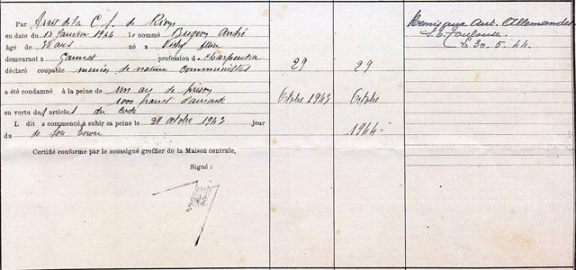 Par Arrêt de la C. S. de Riom
en date du 13 Janvier 1944 le nommé André
Âgé de 38 ans né à Vichy
demeurant à Gannat profession de Charpentier
déclaré coupable menées de nature communistes
a été condamné à la peine de un an de prison
1000 francs d'amende
en vertu des articles du code
L dit a commencé à subir sa peine le 29 octobre 1943 jour
du de son écrou
Certifié conforme par le soussigné greffier de la Maison centrale,
Signé :
29
Octobre 1943
29
Octobre
1944
Remis aux Aut. Allemandes
Toulouse
Le 30.5.44.